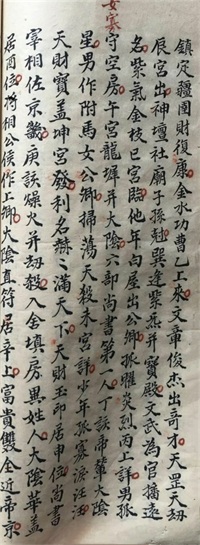 女寡
鎮定疆圍財復康金水功曹乙上來文章俊杰出奇才天罡天刼
辰宮出神壇社廟子孫尅巽逢紫燕并寶殿文武為官擒遠
名紫氣金枝巳宮臨他年白屋出公卿孤曜炎烈丙上詳男孤
守空房午宮龍墀并大陰六部尚書第一人丁該帝輦大陰
星男作附馬女公卿掃蕩天殺未宮詳少年孤寡淚汪汪
天財寶盖坤宮發利名赫〻滿天下天財玉印居申位尚書
宰相佐京畿庚該燥火并刼殺入舍填房異姓人大陰華盖
居酉位將相公侯作上卿大陰直符居辛上富貴雙全近帝京